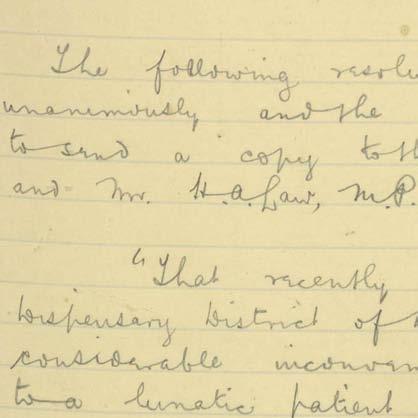 The following resolu
unanimously and the
to send a copy to th
and Mr. H. A. Law, M.P.
"That recently
Dispensary District of
considerable inconven
to a lunatic patient